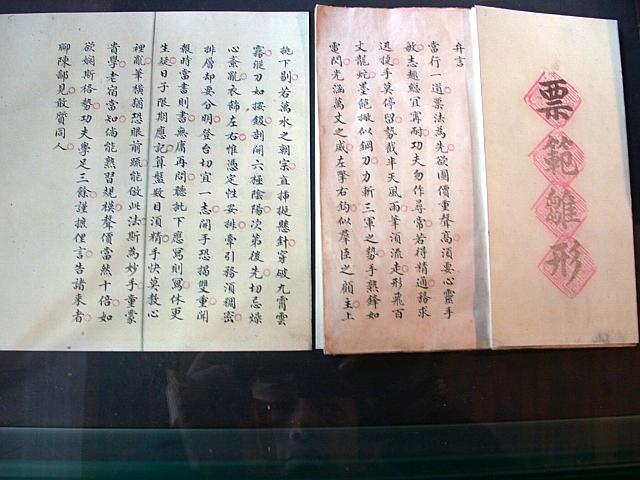 票範雛形
弁言
當行一道票法為先欲圖價重聲高須要心靈手
敏志趣緦宜寡耐功夫勿作尋常若得精通務求
迅捷手莫停留勢截半天風雨筆須流走形飛百
文龍蛇墨飽撇似鋼刀力斬三軍之勢手熟鋒如
電閃光涵萬丈之威左擎右鈎似群臣之顧主上
挑下剔若萬水之朝宗直揷挺懸針穿破九霄雲
霧提刀如按鈒剖開六極陰陽次第後先切忌燥
心紊亂衣飾左右惟憑定性安排牽引務須稠密
排層却要分明登台切宜一志開手恐揭雙重開
報時當書則書無庸再問聽批下應寫則寫休更
生徒日子限期應記算盤數目須精手快莫教心
裡亂筆橫猶恐眼前蹤能倣此法斯為妙手童蒙
肯學老宿當知倘能熟習規模聲價當然十倍如
欲嫻斯格勢功夫學足三餘謹攄俚言告諸來者
聊陳鄙見敢質同人